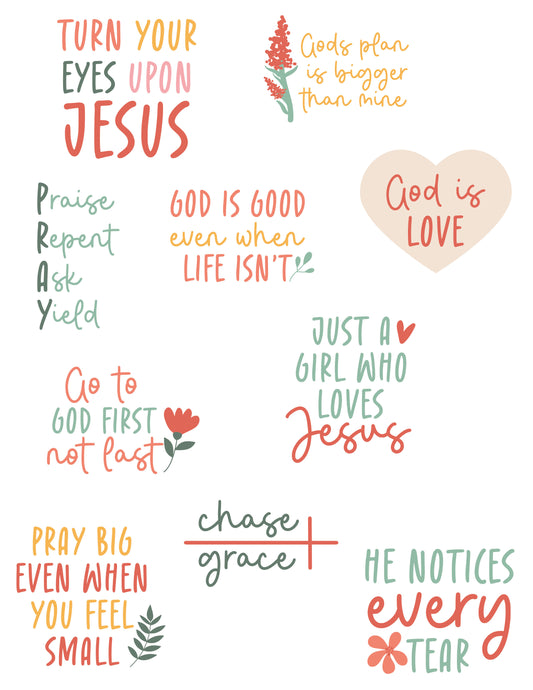 TURN YOUR
EYES UPON
JESUS
Gods plan
is bigger
than mine
Praise
Repent
Ask
Yield
GOD IS GOOD
even when
LIFE ISN'T
God is
LOVE
JUST A
GIRL WHO
LOVES
Jesus
Go to
GOD FIRST
not last
chase
grace
PRAY BIG
EVEN WHEN
YOU FEEL
SMALL
HE NOTICES
every
TEAR